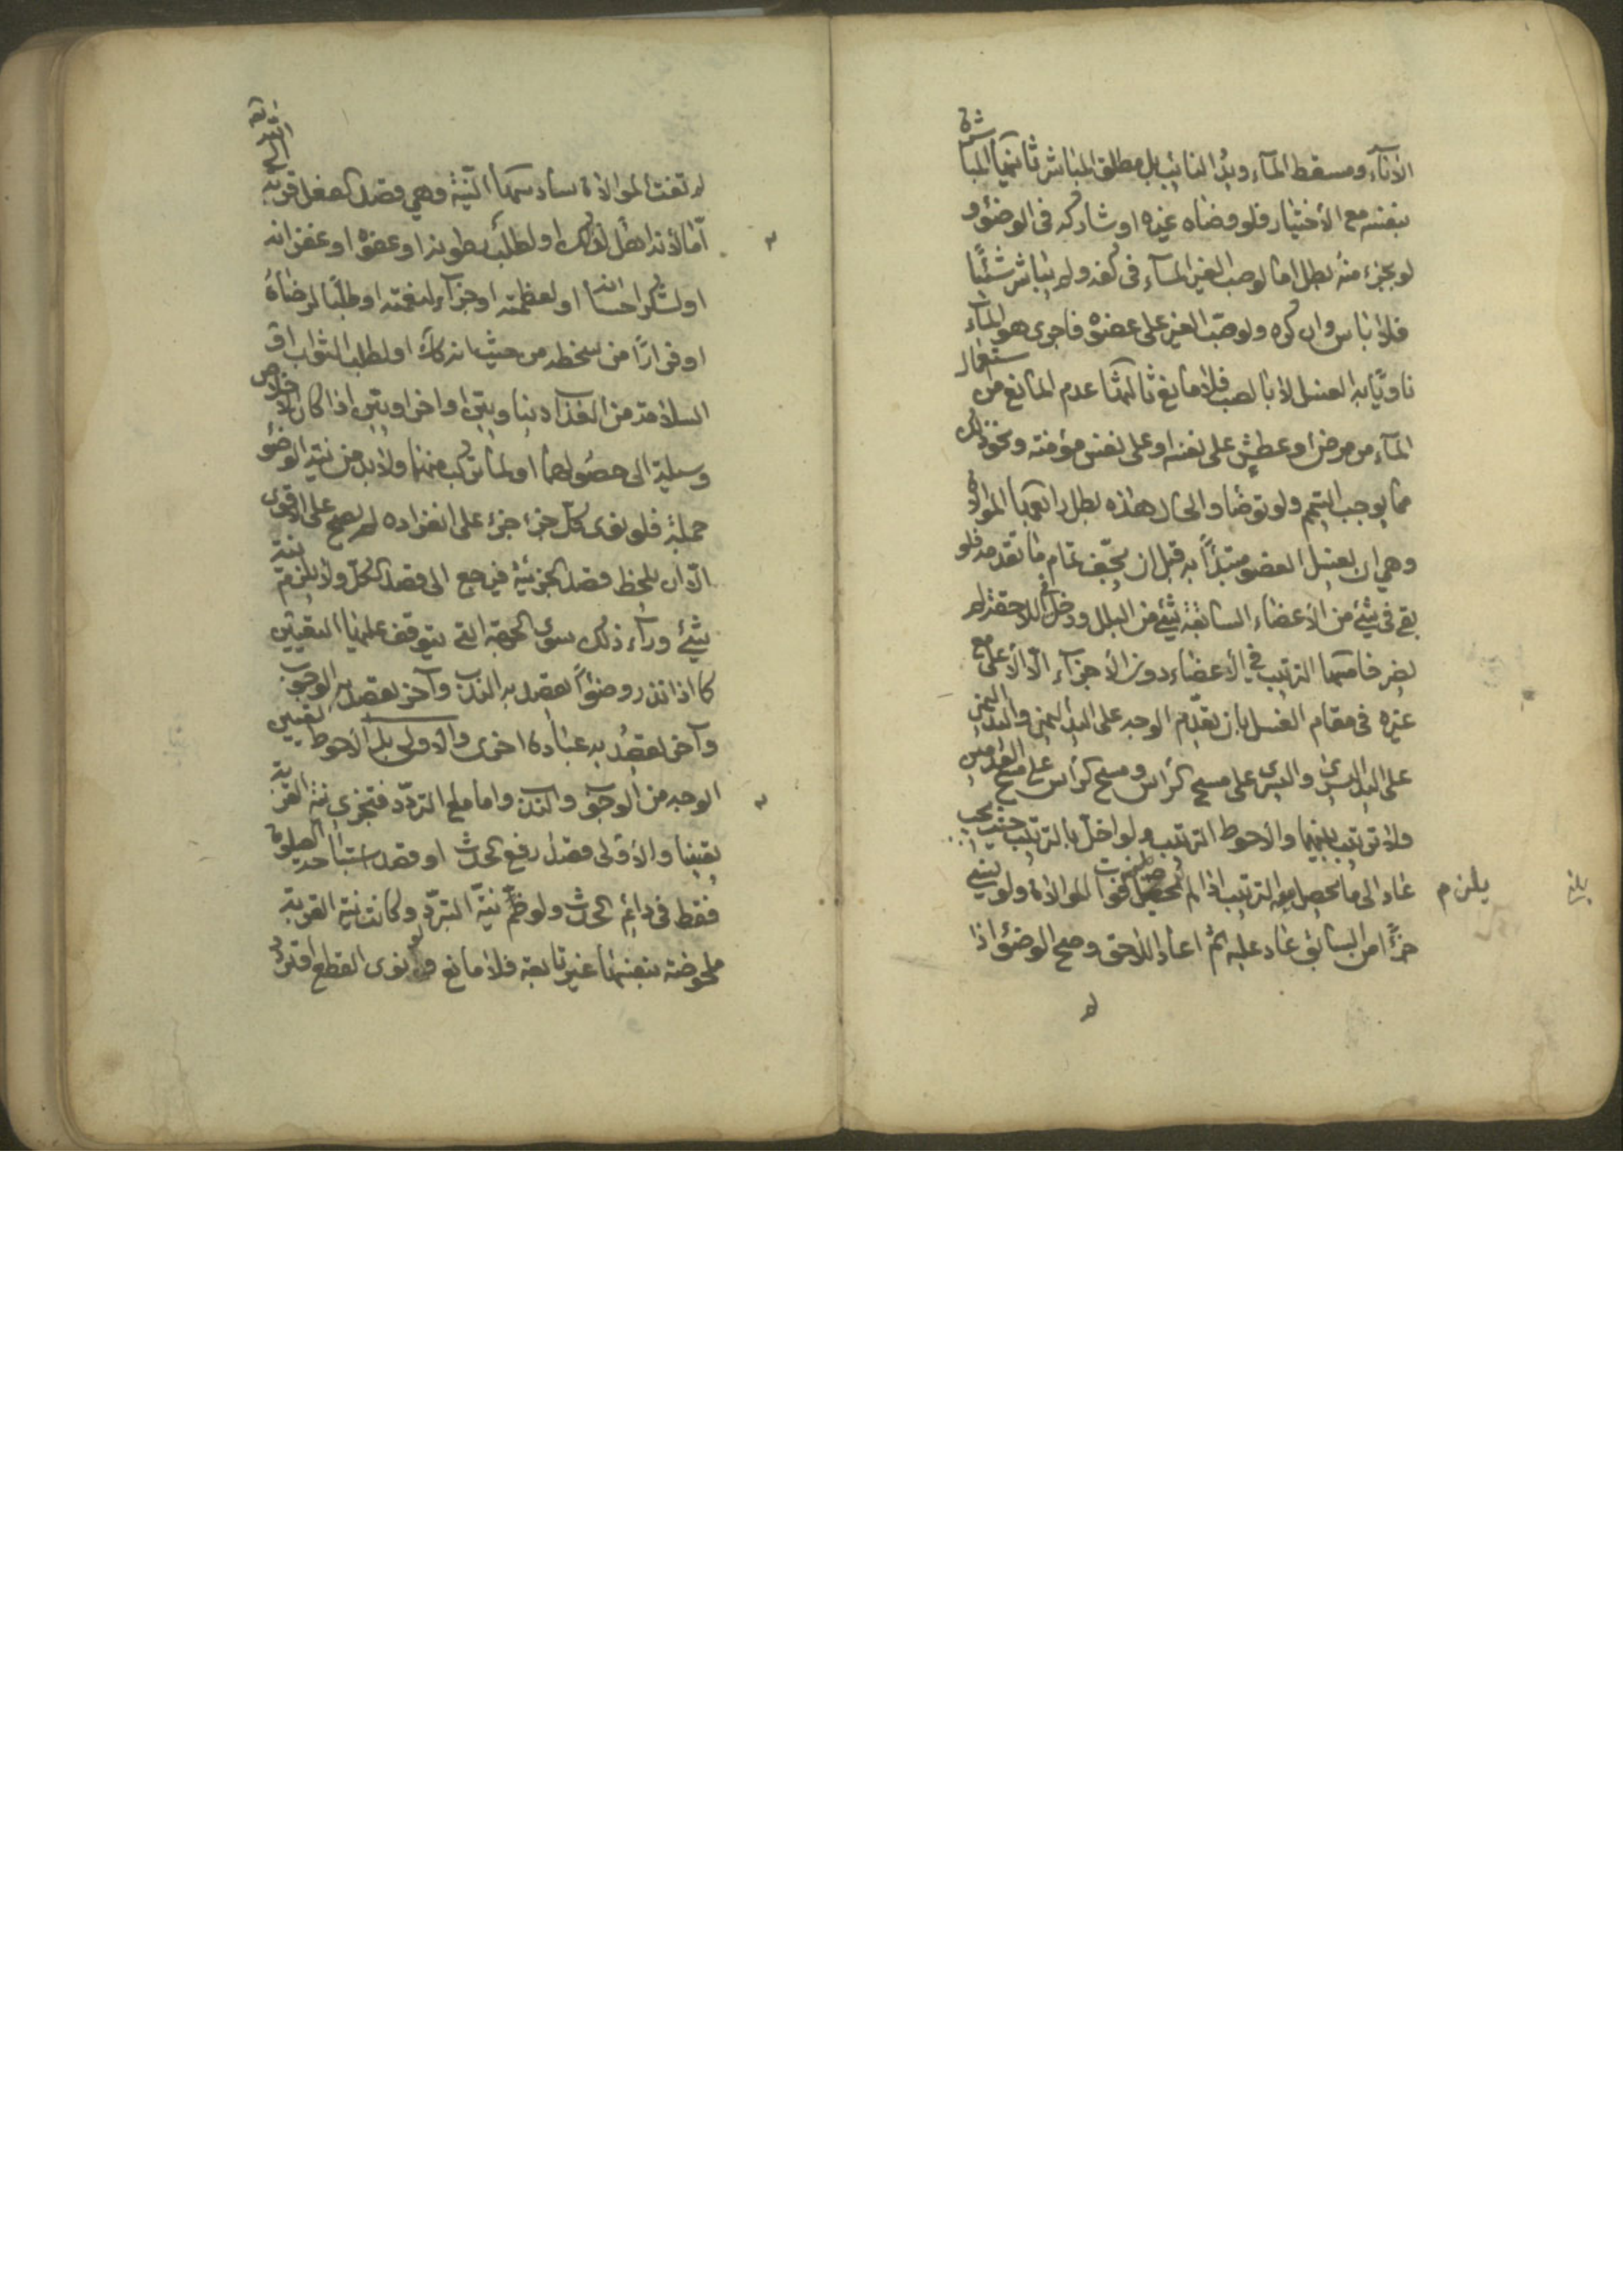 الاناء ومسقط الماء ويد النائب بل مطلق المباشر ثانيها المباشرة
بنفسه مع الاختيار فلو وضاه غيره او شاركه في الوضوء و
لو بجزء منه بطل اما لو صب الغير الماء في كفه ولم يباشر شيئا
فلا باس وان كره ولو صب الغير على عضوه فاجرى هو الماء
ناويا به الغسل لا بالصب فلا مانع ثالثها عدم المانع من استعمال
الماء من مرض او عطش على نفسه او على نفس مؤمنة ونحو ذلك
مما يوجب التيمم ولو توضا والحال هذه بطل رابعها الموالاة
وهي ان يغسل العضو مبتدأ به قبل ان يجف تمام ما تقدمه فلو
بقي في شيء من الاعضاء السابقة شيء من البلل ودخل في اللاحقة لم
يضر خامسها الترتيب في الاعضاء دون الاجزاء الا الاعلى مع
غيره في مقام الغسل بان يقدم الوجه على اليد اليمنى واليد اليمنى
على اليد اليسرى واليسرى على مسح الراس ومسح الراس على مسح القدمين
ولا ترتيب بينهما والاحوط الترتيب ولو اخل بالترتيب حيث يجب
عاد الى ما يحصل به الترتيب اذا لم يحصل فوات الموالاة ولو نسي
جزءا من السابق عاد عليه ثم اعاد اللاحق وصح الوضوء اذا
لم
يلزم
لم تفت الموالاة سادسها النية وهي قصد الفعل قربة الى الله تعالى
اما لانه اهل لذلك او لطلب رضوانه او عفوه او غفرانه
او لشكر احسانه او لعظمته او جزاء لنعمته او طلبا لمرضاته
او فرارا من سخطه من حيث انه كذلك او لطلب الثواب او
السلامة من العذاب دنيويين او اخرويين اذا كان الاخلاص
وسيلة الى حصولهما او لما تركب منهما ولا بد من نية الوضوء
جملة فلو نوى كل جزء جزء على انفراده لم يصح على الاقوى
الا ان يلحظ قصد الجزئية فيرجع الى قصد الكل ولا يلزم نية
شيء وراء ذلك سوى الجهة التي يتوقف عليها التعيين
كما اذا نذر وضوءا يقصد به الندب وآخر يقصد به الوجوب
وآخر يقصد به عبادة اخرى والاولى بل الاحوط تعيين
الوجه من الوجوب والندب واما مع التردد فتجزي نية القربة
يقينا والاولى قصد رفع الحدث او قصد استباحة الصلوة
فقط في دائم الحدث ولو ضم نية التبرد وكانت نية القربة
ملحوظة بنفسها غير تابعة فلا مانع ولو نوى القطع